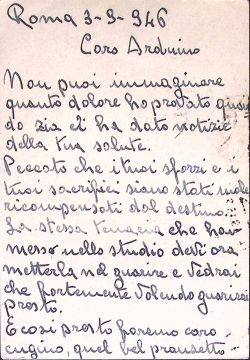 Roma 3-9-946
Caro Arduino
Non puoi immaginare
quanto dolore ho provato quan
do zia ci ha dato notizie
della tua salute.
Peccato che i tuoi sforzi e i
tuoi sacrifici siano stati male
ricompensati dal destino.
La stessa tenacia che hai
messo nello studio devi ora
metterla nel guarire e vedrai
che fortemente volendo guarirai
presto.
E così presto faremo caro
cugino, quel bel pranzetto